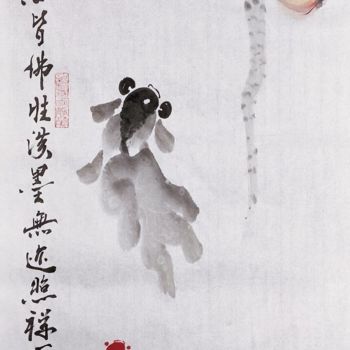 皆佛性淡墨無迹照禅